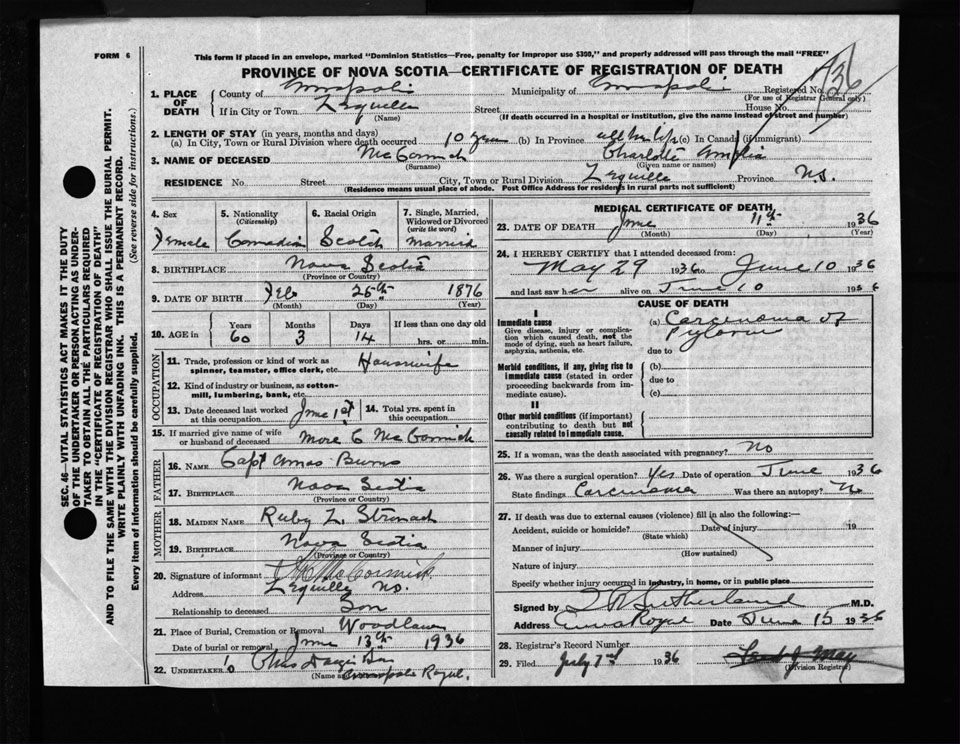 FORM 6
This form if placed in an envelope, marked "Dominion Statistics—Free, penalty for improper use $300," and properly addressed will pass through the mail "FREE"
PROVINCE OF NOVA SCOTIA—CERTIFICATE OF REGISTRATION OF DEATH
1. PLACE OF DEATH
County of Annapolis Municipality of Annapolis Registered No.
(For use of Registrar General only)
If in City or Town Lequille Street House No.
(Name) (If death occurred in a hospital or institution, give the name instead of street and number)
2. LENGTH OF STAY (in years, months and days)
(a) In City, Town or Rural Division where death occurred 10 years (b) In Province all her life (c) In Canada (if immigrant)
3. NAME OF DECEASED McCormick Charlotte Amelia
(Surname) (Given name or names)
RESIDENCE No Street City, Town or Rural Division Lequille Province N.S.
(Residence means usual place of abode. Post Office Address for residents in rural parts not sufficient)
4. Sex
Female
5. Nationality
(Citizenship)
Canadian
6. Racial Origin
Scotch
7. Single, Married, Widowed or Divorced
(write the word)
Married
8. BIRTHPLACE Nova Scotia
(Province or Country)
9. DATE OF BIRTH Feb 25th 1876
(Month) (Day) (Year)
10. AGE in
Years Months Days If less than one day old
60 3 14 hrs. or min.
OCCUPATION
11. Trade, profession or kind of work as
spinner, teamster, office clerk, etc. Housewife
12. Kind of industry or business, as cotton-
mill, lumbering, bank, etc.
13. Date deceased last worked at this occupation June 1st
14. Total yrs. spent in this occupation
15. If married give name of wife
or husband of deceased C McCormick
FATHER
16. NAME Capt Amos Burns
17. BIRTHPLACE Nova Scotia
(Province or Country)
MOTHER
18. MAIDEN NAME Ruby L. Stronach
19. BIRTHPLACE Nova Scotia
(Province or Country)
20. Signature of informant McCormick
Lequille N.S.
Relationship to deceased Son
21. Place of Burial, Cremation or Removal Woodlawn
Date of burial or removal June 13th 1936
22. UNDERTAKER
(Name and Annapolis Royal
MEDICAL CERTIFICATE OF DEATH
23. DATE OF DEATH June 11th 1936
(Month) (Day) (Year)
24. I HEREBY CERTIFY that I attended deceased from:
May 29 1936 to June 10 1936
and last saw her alive on June 10 1936
CAUSE OF DEATH
I
Immediate cause
Give disease, injury or complication which caused death, not the mode of dying, such as heart failure, asphyxia, asthenia, etc.
(a) Carcinoma of
Pylorus
due to
Morbid conditions, if any, giving rise to immediate cause (stated in order proceeding backwards from immediate cause).
(b)
due to
(c)
II
Other morbid conditions (if important) contributing to death but not causally related to immediate cause.
25. If a woman, was the death associated with pregnancy? No
26. Was there a surgical operation? Yes Date of operation June 1936
State findings Carcinoma Was there an autopsy? No
27. If death was due to external causes (violence) fill in also the following:—
Accident, suicide or homicide? Date of injury 19
(State which)
Manner of injury
(How sustained)
Nature of injury
Specify whether injury occurred in industry, in home, or in public place
Signed by Sutherland M.D.
Address Anna Royal Date June 15 1936
28. Registrar's Record Number
29. Filed July 7th 1936
(Division Registrar)
SEC. 46—VITAL STATISTICS ACT MAKES IT THE DUTY
OF THE UNDERTAKER OR PERSON ACTING AS UNDER-
TAKER TO OBTAIN ALL THE PARTICULARS REQUIRED
IN THE "CERTIFICATE OF REGISTRATION OF DEATH"
AND TO FILE THE SAME WITH THE DIVISION REGISTRAR WHO SHALL ISSUE THE BURIAL PERMIT.
WRITE PLAINLY WITH UNFADING INK. THIS IS A PERMANENT RECORD.
Every item of information should be carefully supplied. (See reverse side for instructions.)